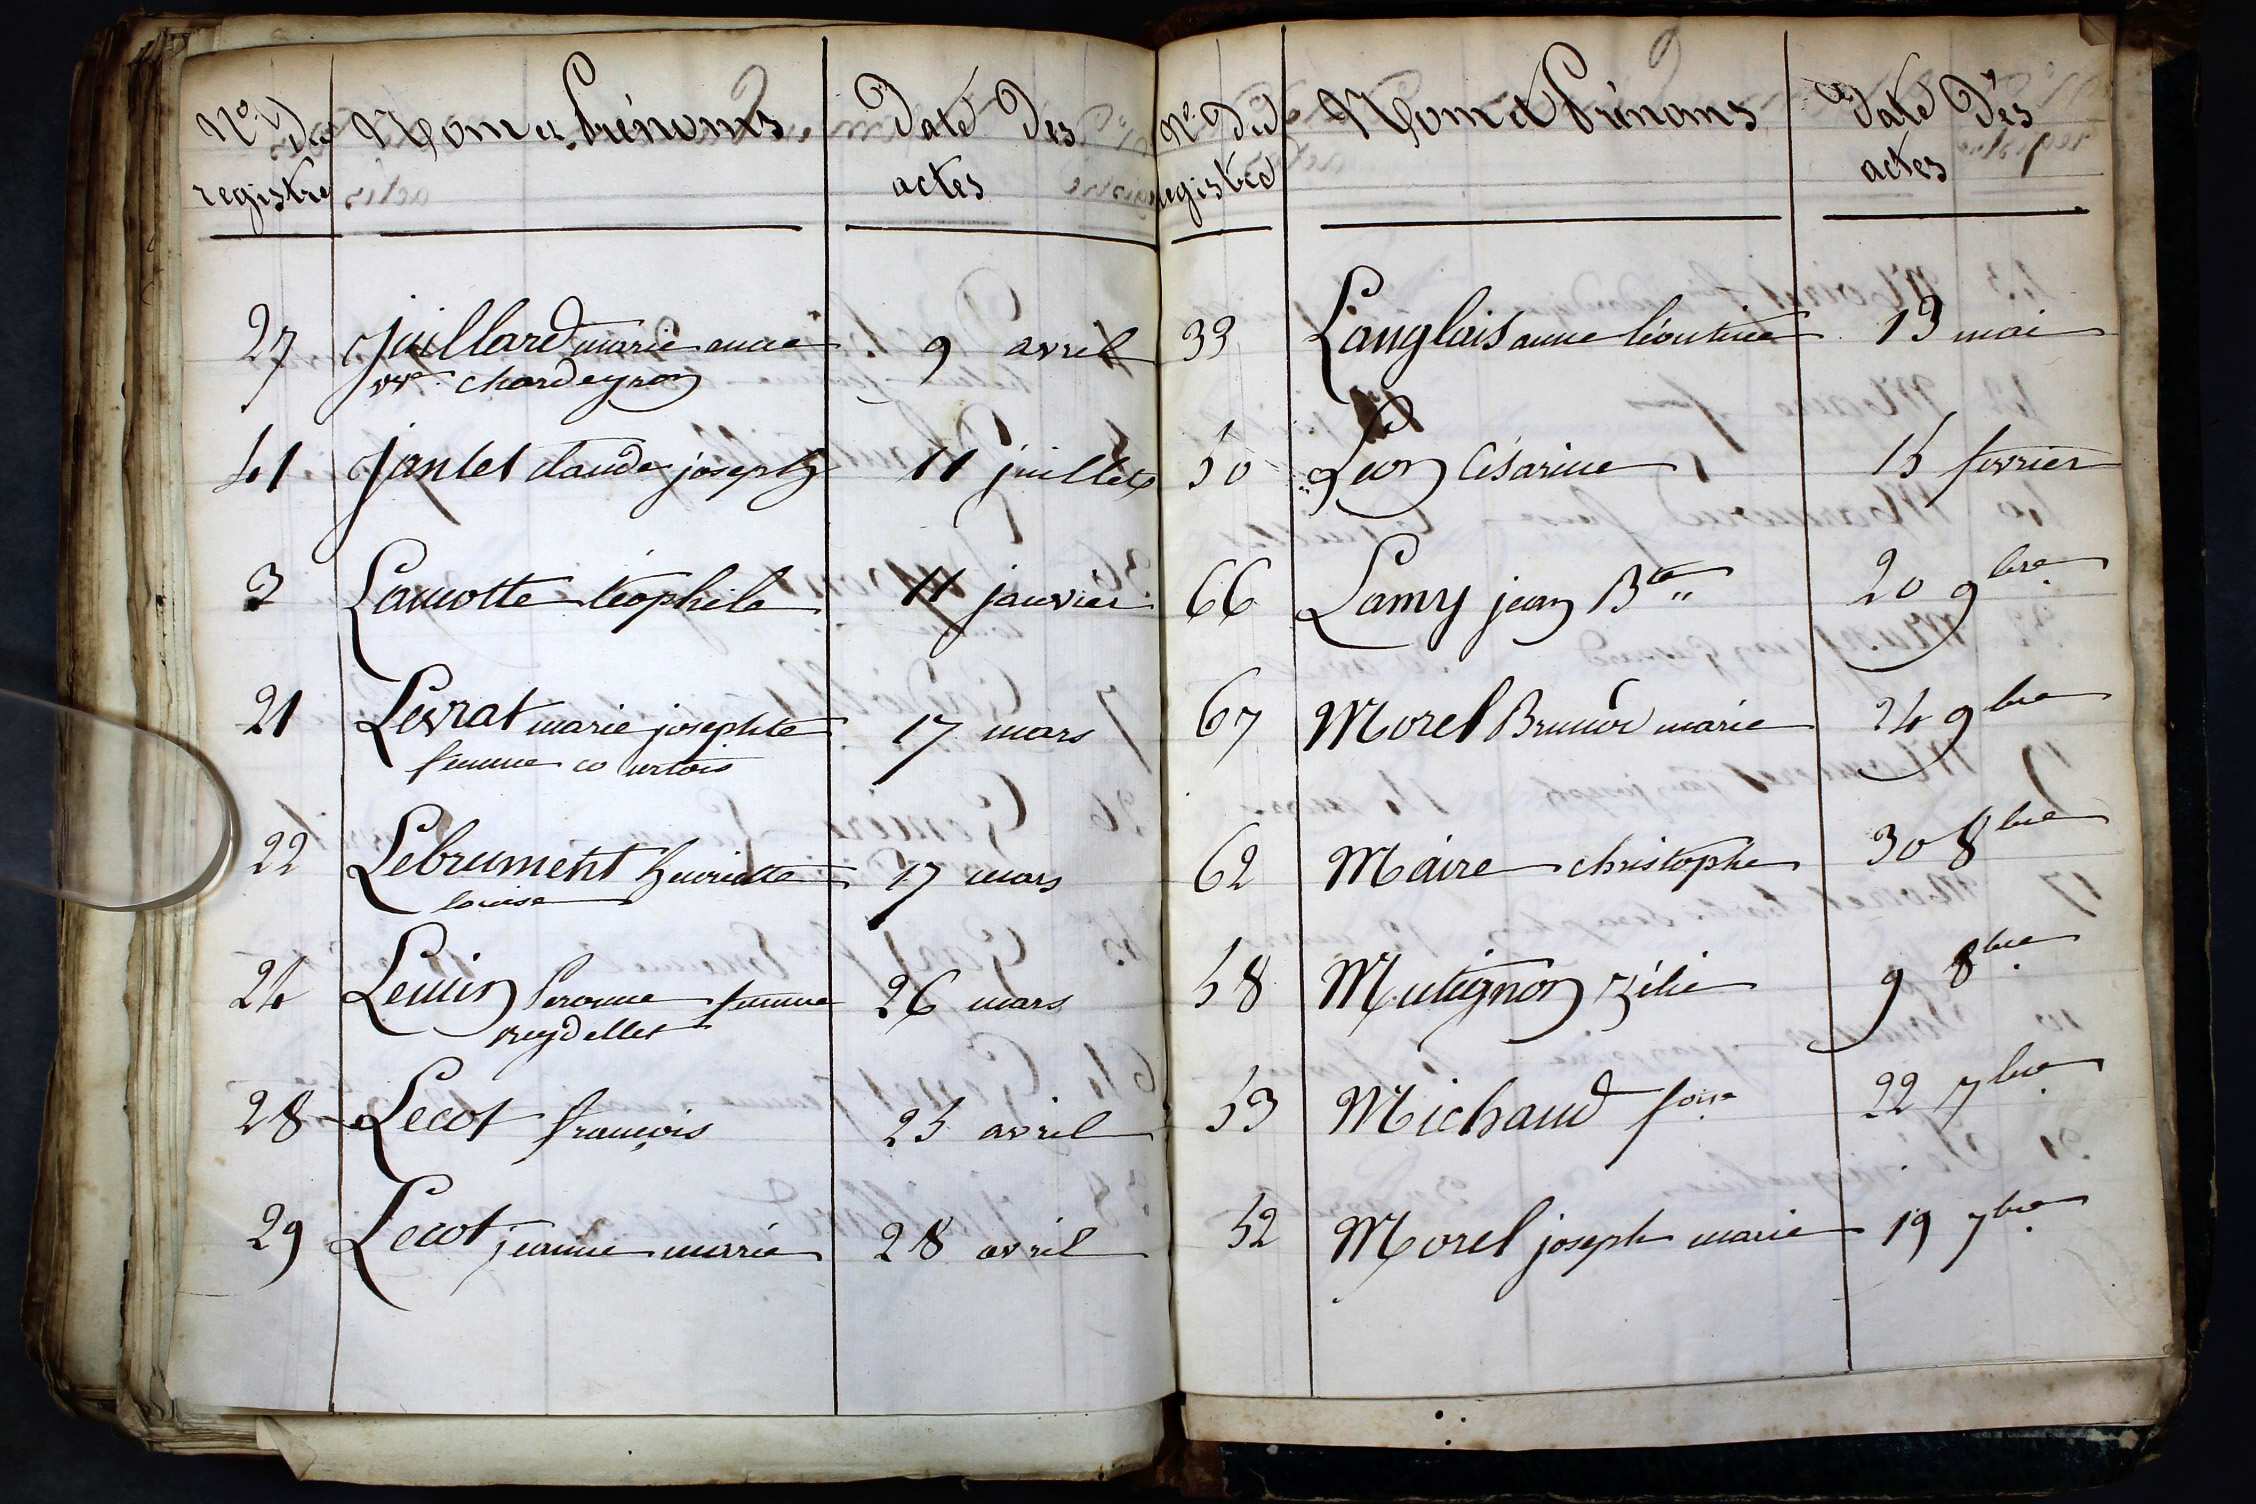 N.o de Nom et Prénoms date des
registre actes
27 Juillard marie anne 9 avril
vve. chardeyron
41 Jantet claude joseph 11 juillet
3 Lamotte téophile 11 janvier
21 Levrat marie josephte 17 mars
femme courtois
22 Lebrument henriette 17 mars
louise
24 femme 26 mars
reydellet
28 Lecot françois 25 avril
29 Lecot jeanne marie 28 avril
N.o de Nom et Prénoms date des
registre actes
33 Langlais anne léontine 13 mai
50 Léon Césarine 15 fevrier
66 Lamy jean Bte 20 9bre
67 Morel marie 24 9bre
62 Maire christophe 30 8bre
58 Mutignon zélie 9 8bre
53 Michaud foise 22 7bre
52 Morel joseph marie 19 7bre